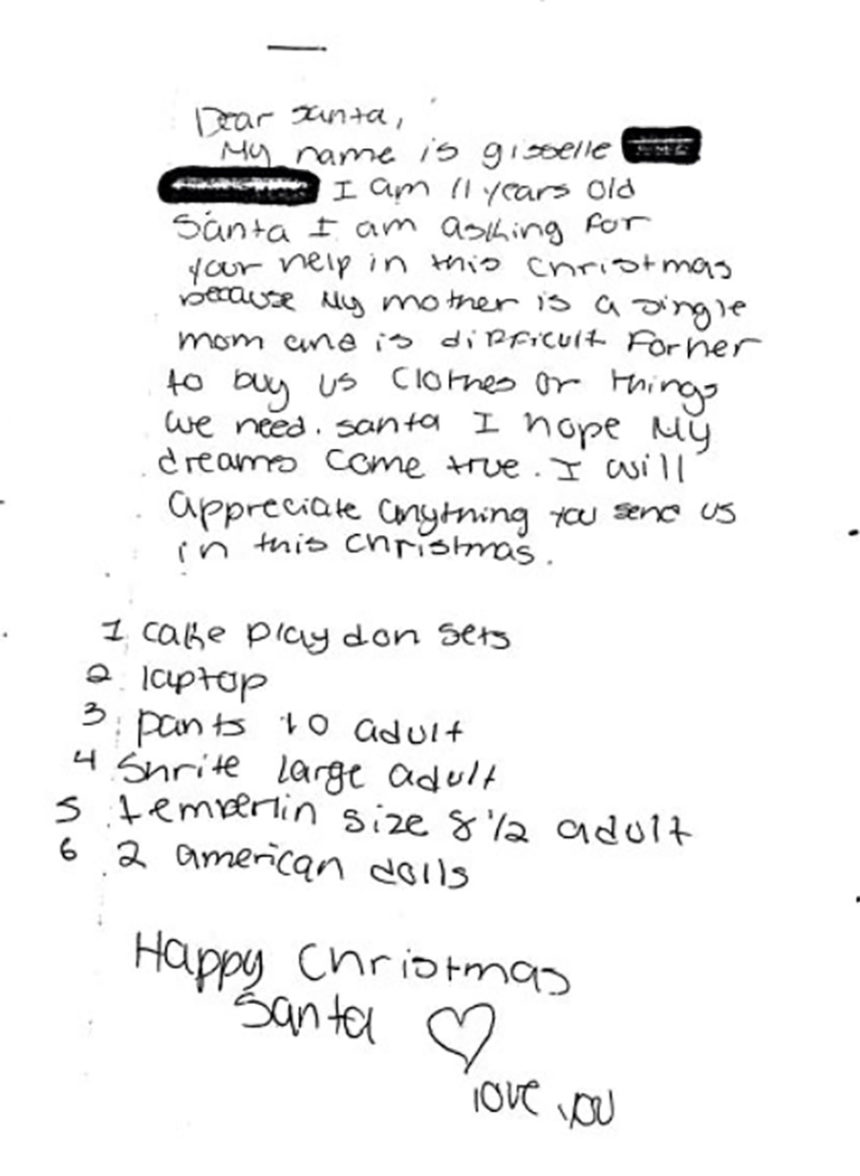 Dear Santa,
My name is gisselle
I am 11 years old
Santa I am asking for
your help in this Christmas
because My mother is a single
mom and is difficult for her
to buy us clothes or things
we need. santa I hope My
dreams come true. I will
appreciate anything you send us
in this christmas.
1 cake play doh sets
2 laptop
3 pants 10 adult
4 Shrite large adult
5 temberlin size 8 1/2 adult
6 2 american dolls
Happy Christmas
Santa
love you